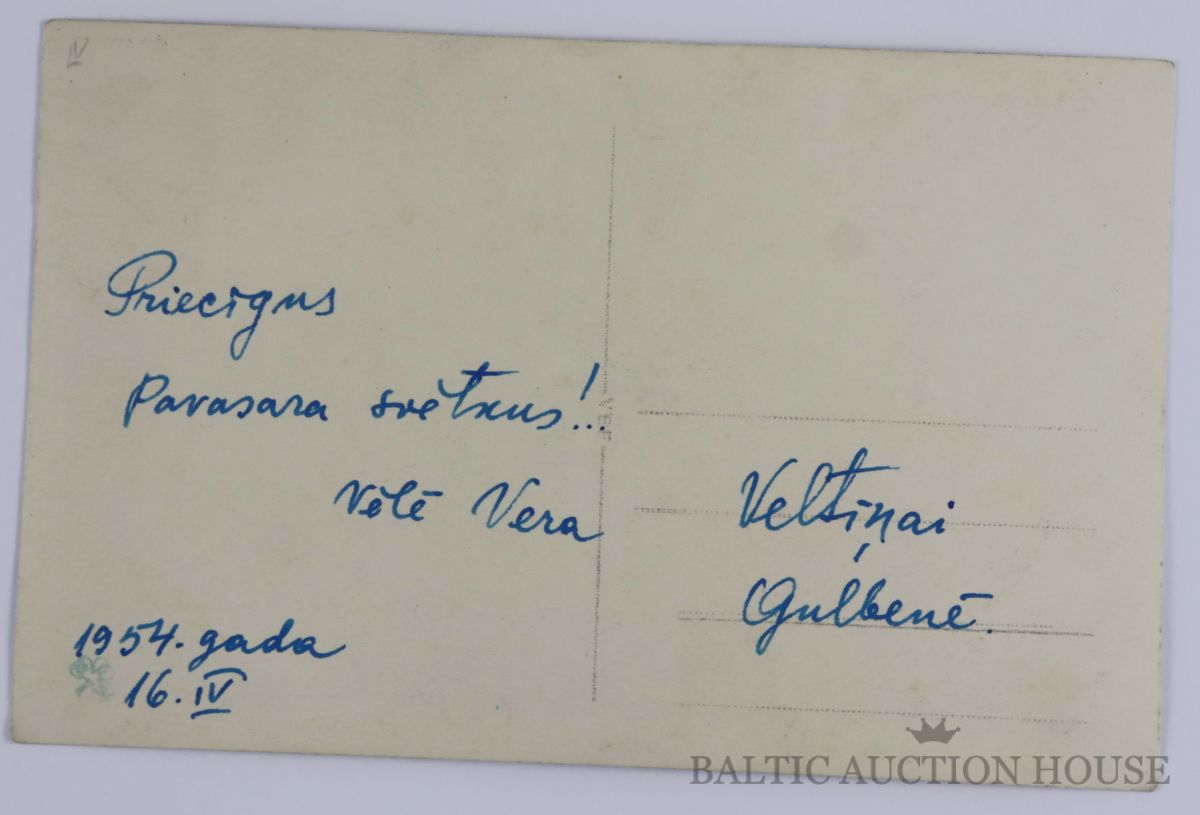 Priecīgus
Pavasara svētkus!..
Vēlē Vera
1954. gada
16. IV
VEF
Veltiņai
Gulbenē.
BALTIC AUCTION HOUSE